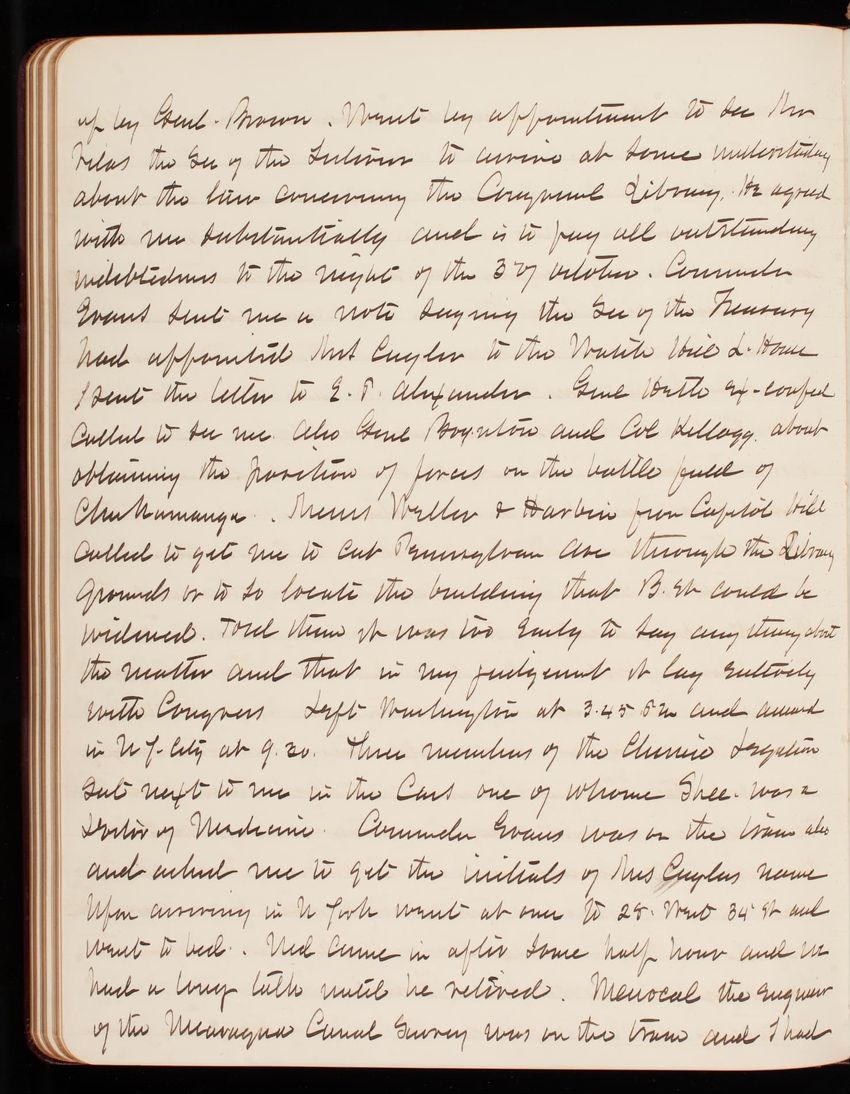 up by Genl. Brown. Went by appointment to see Mr
Vilas the Sec of the Interior to arrive at some understanding
about the law concerning the Congressnl Library. He agreed
with me substantially and is to pay all outstanding
indebtedness to the night of the 3d of October. Commander
Evans sent me a note saying the Sec of the Treasury
had appointed Mrs Cuyler to the Watch Hill L. House
I sent the letter to E. P. Alexander. Genl Heth ex-confed
called to see me. Also Genl Boynton and Col Kellogg about
obtaining the position of forces on the battle field of
Chickamauga. Messrs Weller & Harbin from Capitol Hill
called to get me to cut Pennsylvan Ave through the Library
Grounds or to so locate the building that B. St could be
widened. Told them it was too early to say any thing about
the matter and that in my judgement it lay entirely
with Congress Left Washington at 3.45 PM and arrived
in N Y. City at 9.20. Three members of the Chinese Legation
sat next to me in the Cars one of whome was a
Doctor of Medecine. Commander Evans was on the train also
and asked me to get the initials of Mrs Cuylers name
Upon arriving in N York went at once to 28. West 34 St and
went to bed. Ned came in after some half hour and we
had a long talk until he retired. Menocal the Engineer
of the Nicaragua Canal Survey was on the train and I had